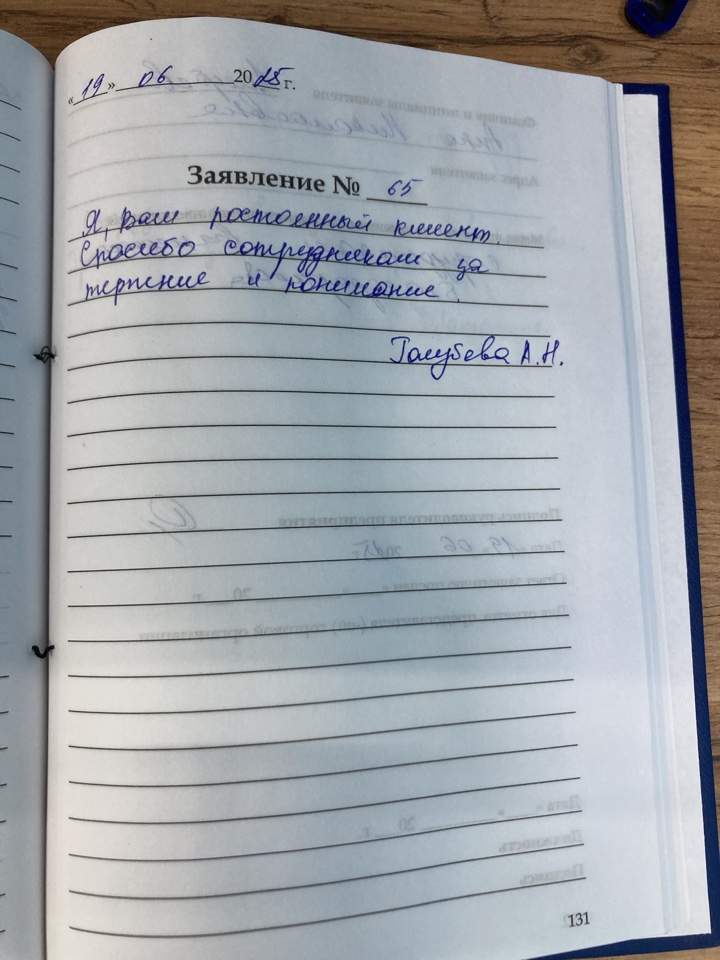 «19» 06 2025 г.
Заявление № 65
Я, Ваш постоянный клиент.
Спасибо сотрудникам за
терпение и понимание.
Голубева А.Н.
131